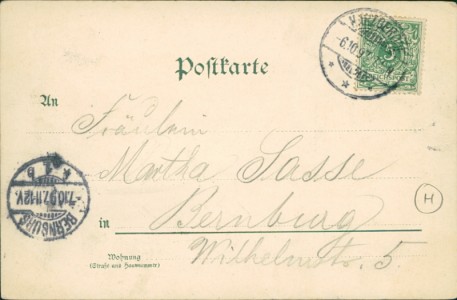 Postkarte
An
Fräulein
Martha Sasse
in Bernburg
Wilhelmstr. 5.
Wohnung
(Straße und Hausnummer)
H
BERNBURG
7.10.97.11-12V.
-6.10.97
5